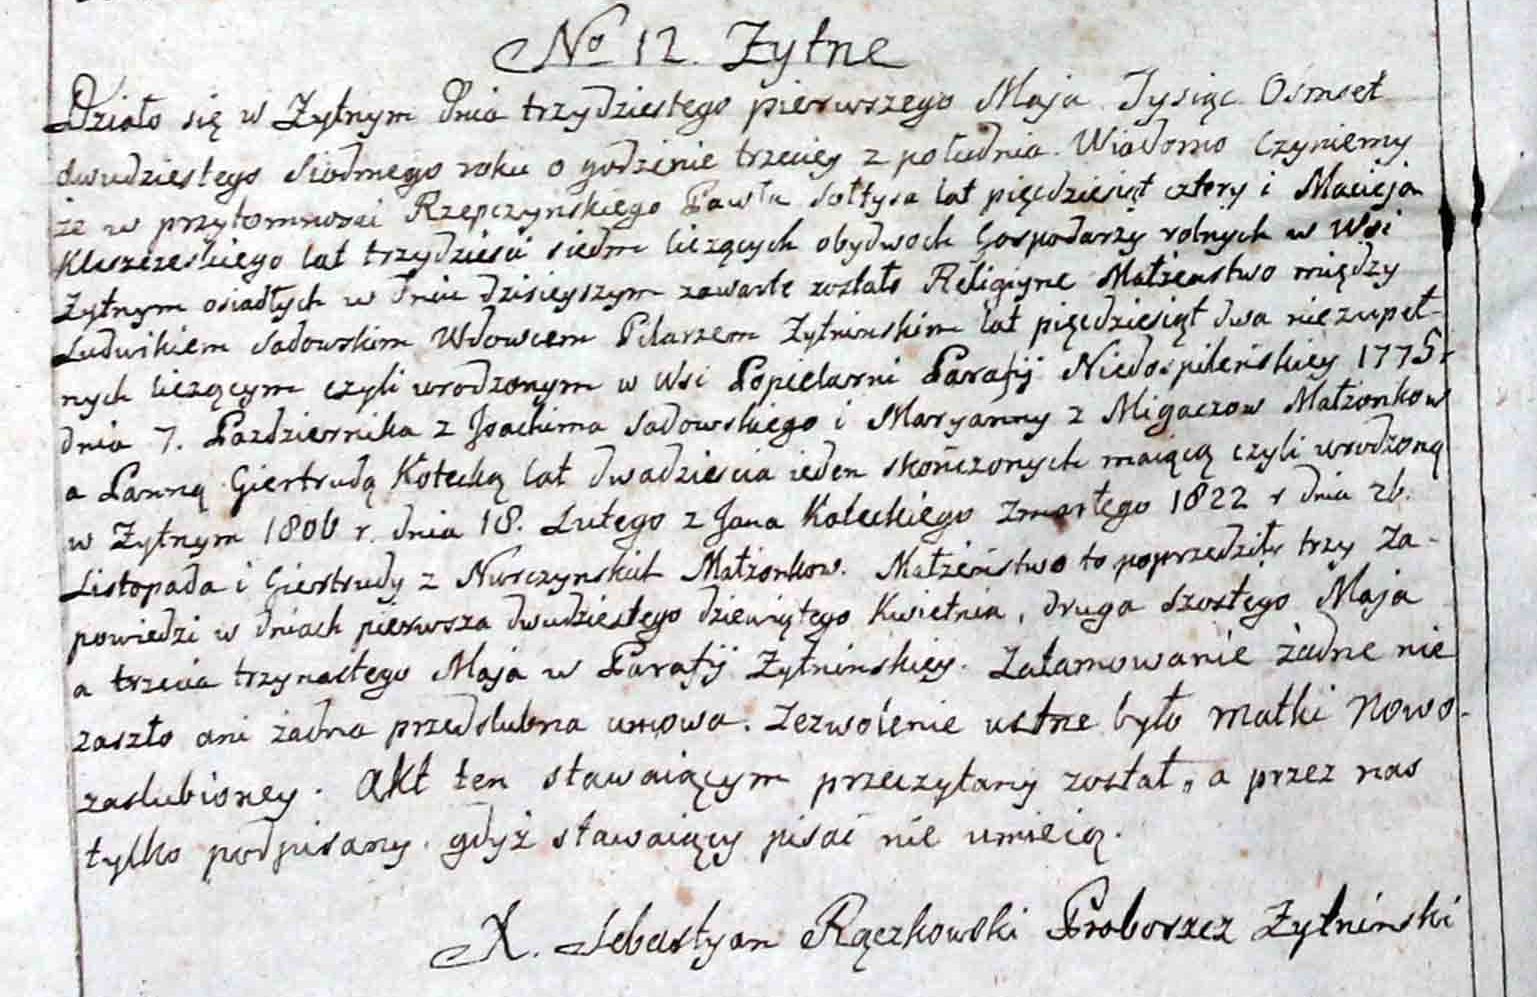 No 12. Zytne
Działo się w Zytnym dnia trzydziestego pierwszego Maja Tysiąc Osmset
dwudziestego siodmego roku o godzinie trzeciey z południa. Wiadomo czyniemy
że w przytomnosci Rzepczynskiego Pawła sołtysa lat pięcdziesiąt cztery i Macieja
Kluszczeskiego lat trzydziesci siedm liczących obydwoch Gospodarzy rolnych w Wsi
Zytnym osiadłych w dniu dzisieyszym zawarte zostało Religiyne Małżenstwo między
Ludwikiem Sadowskim Wdowcem Pilarzem Zytninskim lat pięcdziesiąt dwa niezupeł-
nych liczącym czyli urodzonym w Wsi Popielarni Parafij Niedospileńskiey 1775 r
dnia 7. Pazdziernika z Joachima Sadowskiego i Maryanny z Migaczow Małżonkow
a Panną Giertrudą Kotecką lat dwadziescia ieden skończonych maiącą czyli urodzoną
w Zytnym 1806 r. dnia 18. Lutego z Jana Koteckiego zmarłego 1822 r dnia 26.
Listopada i Giertrudy z Nurczynskich Małżonkow. Małżeństwo to poprzedziły trzy Za-
powiedzi w dniach pierwsza dwudziestego dziewiątego Kwietnia, druga szostego Maja
a trzecia trzynastego Maja w Parafij Zytninskiey. Zatamowanie żadne nie
zaszło ani żadna przedslubna umowa. Zezwolenie ustne było matki Nowo-
zaslubioney. Akt ten stawaiącym przeczytany został, a przez nas
tylko podpisany. gdyż stawaiący pisać nie umieią.
X. Sebastyan Rączkowski Proboszcz Zytninski